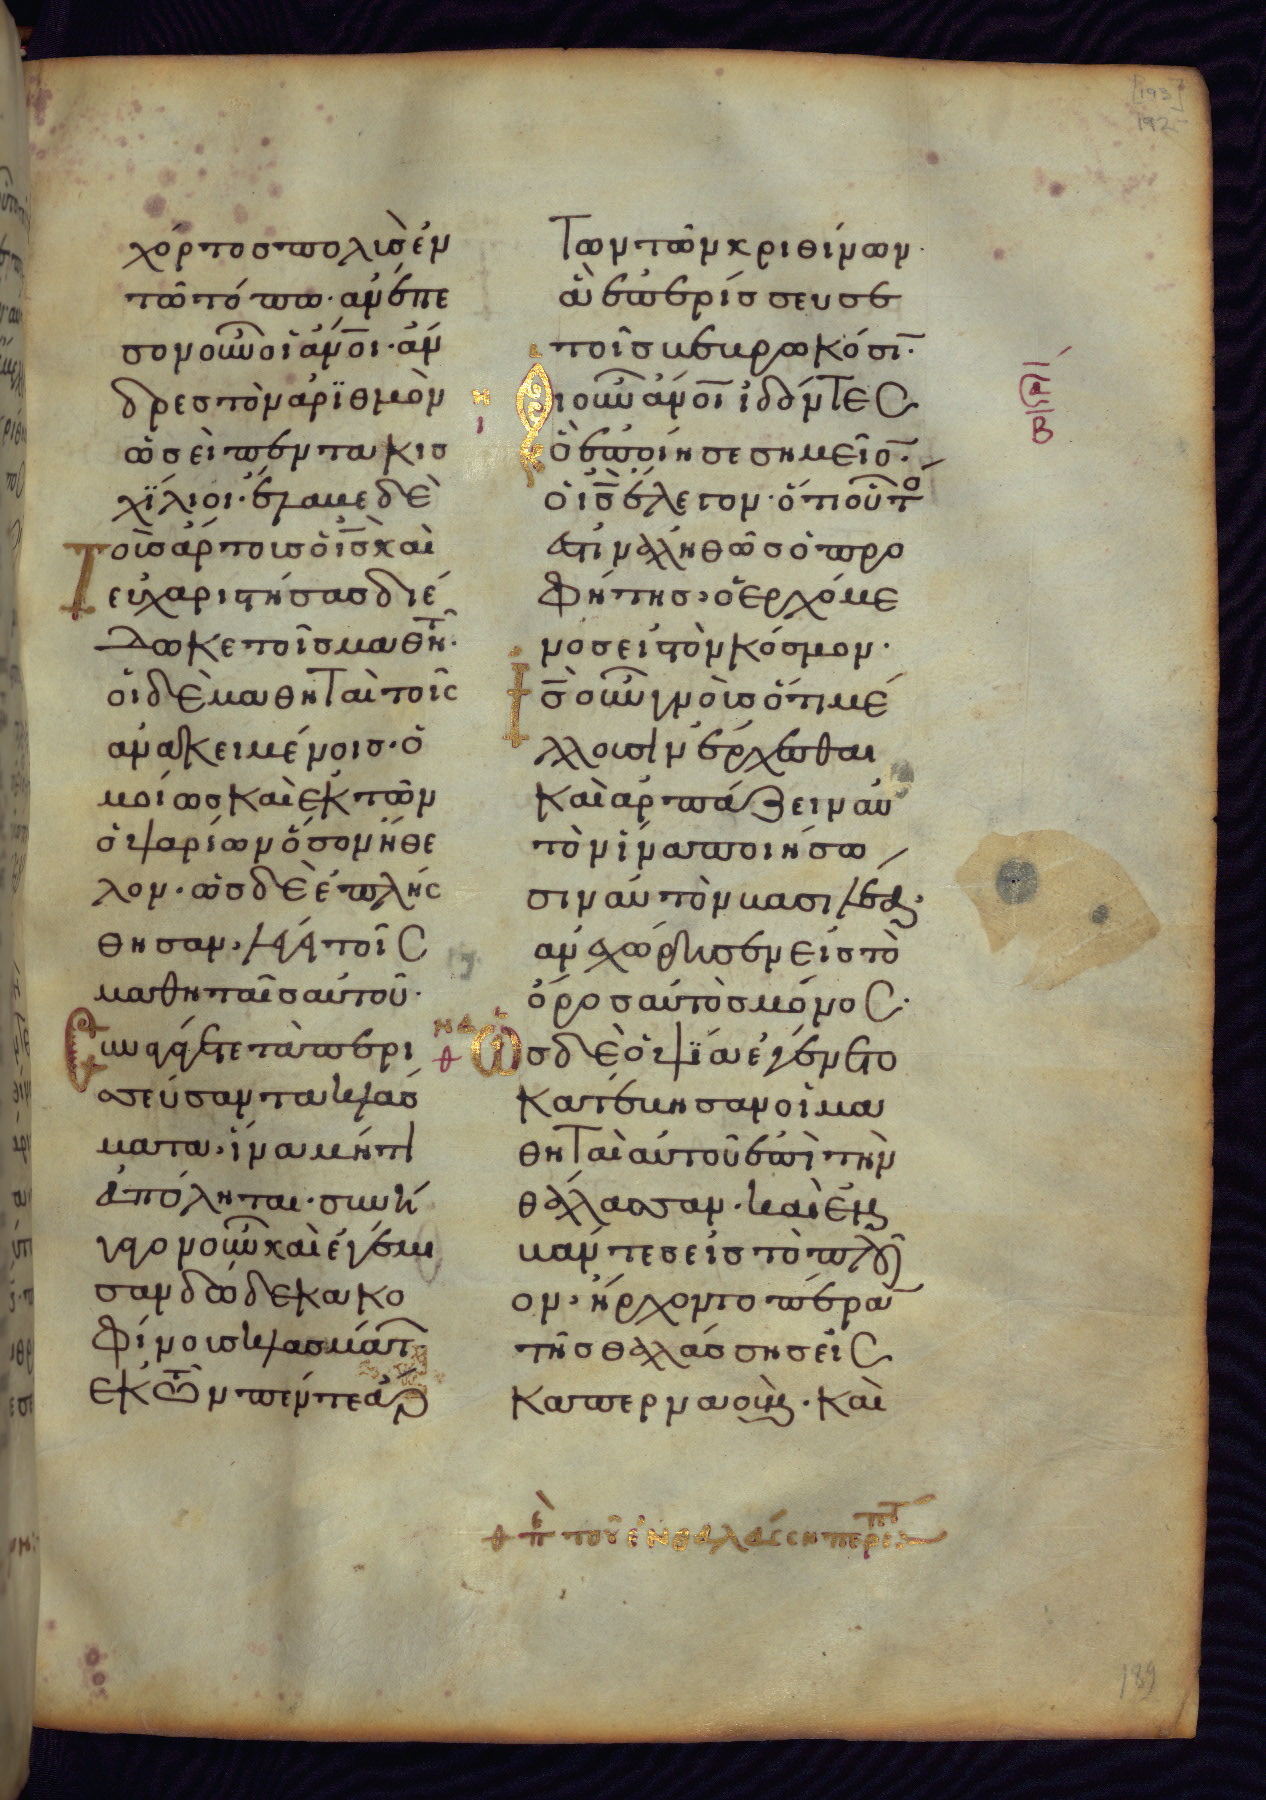 χόρτος πολὺς ἐν
τῶ τόπω· ἀνέπε
σον οὖν οἱ ἄνοι· ἄν
δρες τὸν ἀρϊθμὸν
ὡσεὶ πεντακισ
χίλιοι· ἔλαβε δὲ
Τοὺς ἄρτους ὁ ις καὶ
εὐχαριστήσας διέ
δωκε τοῖς μαθητ·
οἱ δὲ μαθηταὶ τοῖς
ἀνακειμένοις· ὁ
μοίως καὶ ἐκ τῶν
ὀψαρίων ὅσον ἤθε
λον· ὡς δὲ ἐπλήσ
θησαν· λέγει τοῖς
μαθηταῖς αὐτοῦ·
Συναγάγετε τὰ περι
σσεύσαντα κλάσ
ματα· ἵνα μή τι
ἀπόληται· συνή
γαγον οὖν καὶ ἐγέμι
σαν δώδεκα κο
φίνους κλασμάτ
ἐκ τῶν πέντε ἄρ
των τῶν κριθίνων·
ἃ ἐπερίσσευσε
τοῖς βεβρωκόσι·
Οἱ οὖν ἄνοι ἰδόντες
ὃ ἐποίησε σημεῖο·
ὁ ις ἔλεγον· ὅτι οὗτό
ἐστιν ἀληθῶς ὁ προ
φήτης· ὁ ἐρχόμε
νος εἰς τὸν κόσμον·
Ις οὖν γνοὺς ὅτι μέ
λλουσιν ἔρχεσθαι
καὶ ἁρπάζειν αὐ
τὸν ἵνα ποιήσω
σιν αὐτὸν βασιλέα·
ἀνεχώρησεν εἰς τὸ
ὄρος αὐτὸς μόνος·
Ὡς δὲ ὀψία ἐγένετο
κατέβησαν οἱ μα
θηταὶ αὐτοῦ ἐπὶ τὴν
θάλασσαν· καὶ ἐμ
βάντες εἰς τὸ πλοῖ
ον· ἤρχοντο πέρα
τῆς θαλάσσης εἰς
καπερναούμ· καὶ
θ π τοῦ ἐν θαλάσση περιπάτ
189